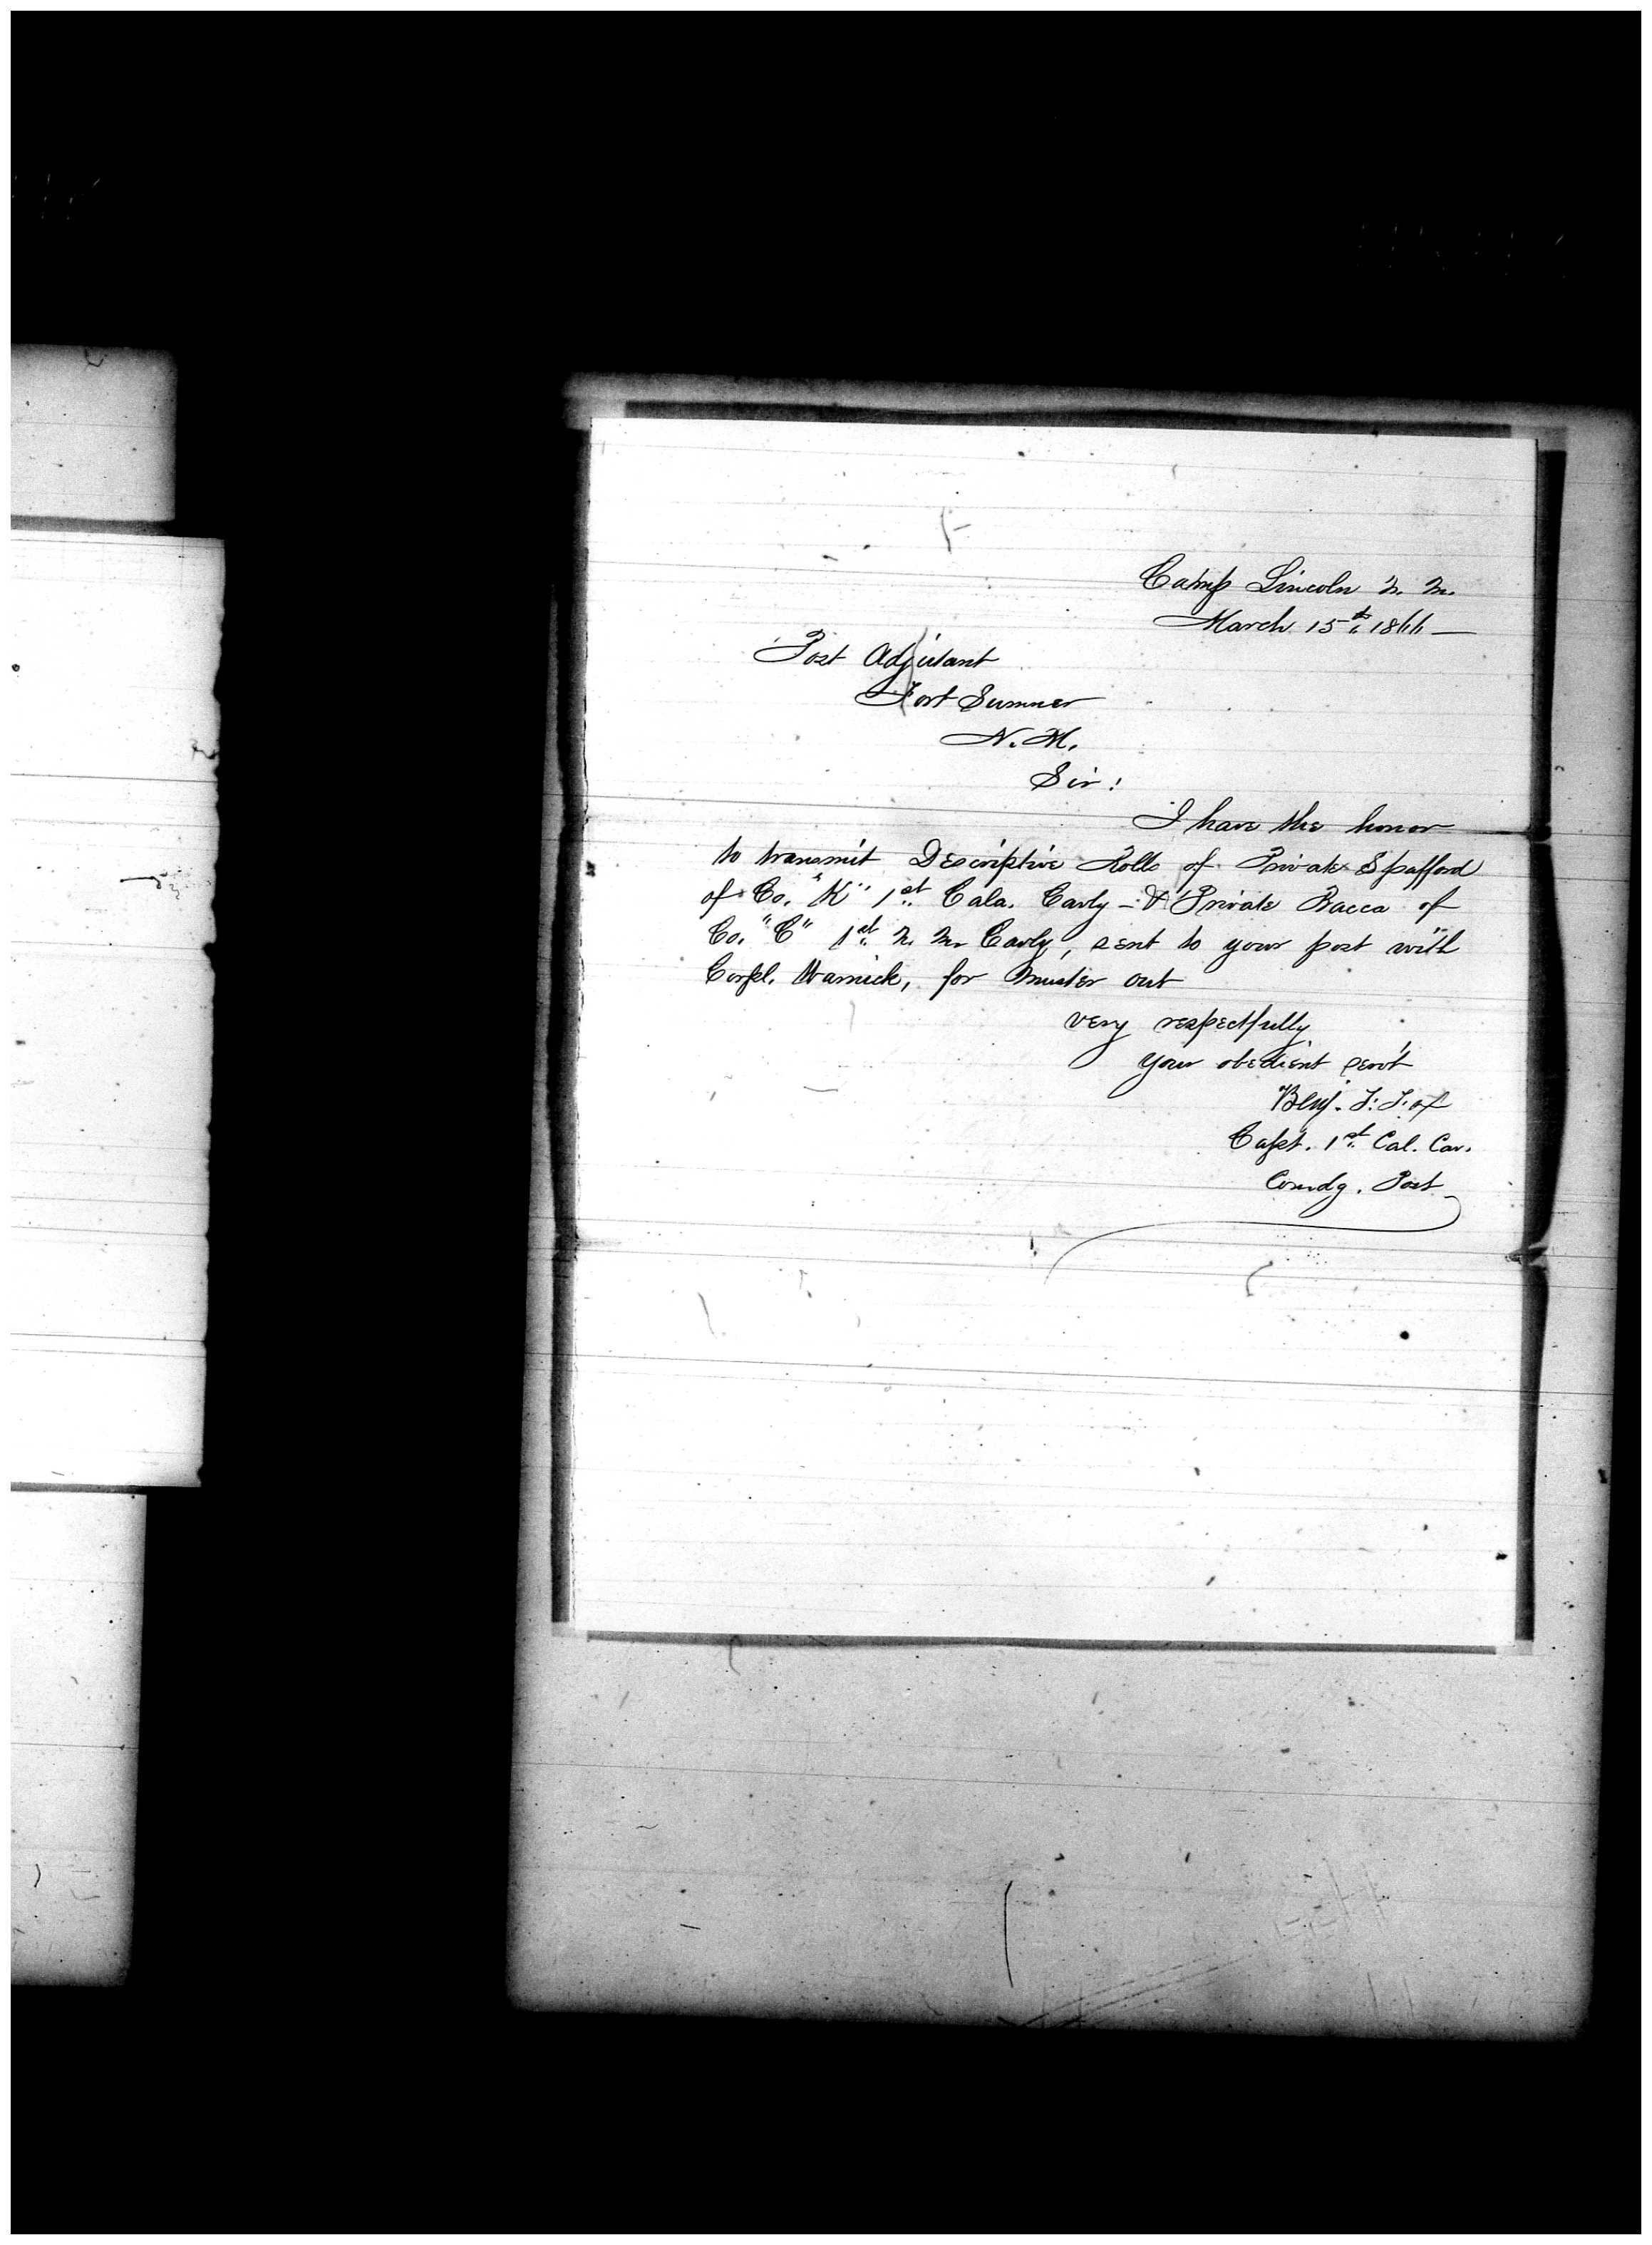 Camp Lincoln N. M.
March 15th 1866 —
Post Adjutant
Fort Sumner
N. M.
Sir:
I have the honor
to transmit Descriptive Rolls of Private Spafford
of Co. "K" 1st Cala. Cavly — & Private Bacca of
Co. "C" 1st N. M. Cavly, sent to your post with
Corpl. Warnick, for Muster out
very respectfully
your obedient servt
Benj. F. Fox
Capt. 1st Cal. Cav.
Comdg. Post